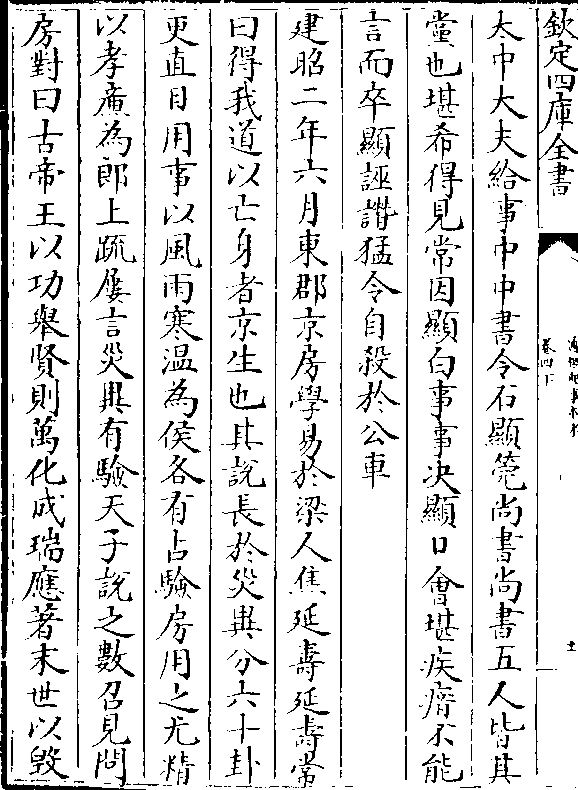 欽定四庫全書
卷四下
大中大夫給事中中書令石顯筦尚書尚書五人皆其
黨也堪希得見常因顯白事事决顯口會堪疾瘖不能
言而卒顯誣譖猛令自殺於公車
建昭二年六月東郡京房學易於梁人焦延壽延壽常
曰得我道以亡身者京生也其說長於災異分六十卦
更直日用事以風雨寒溫為侯各有占驗房用之尤精
以孝廉為郎上疏屢言災異有驗天子說之數召見問
房對曰古帝王以功舉賢則萬化成瑞應著末世以毀